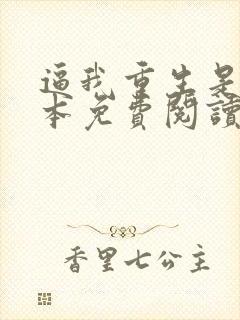 逼我重生是
本免費閱讀
香里七公主